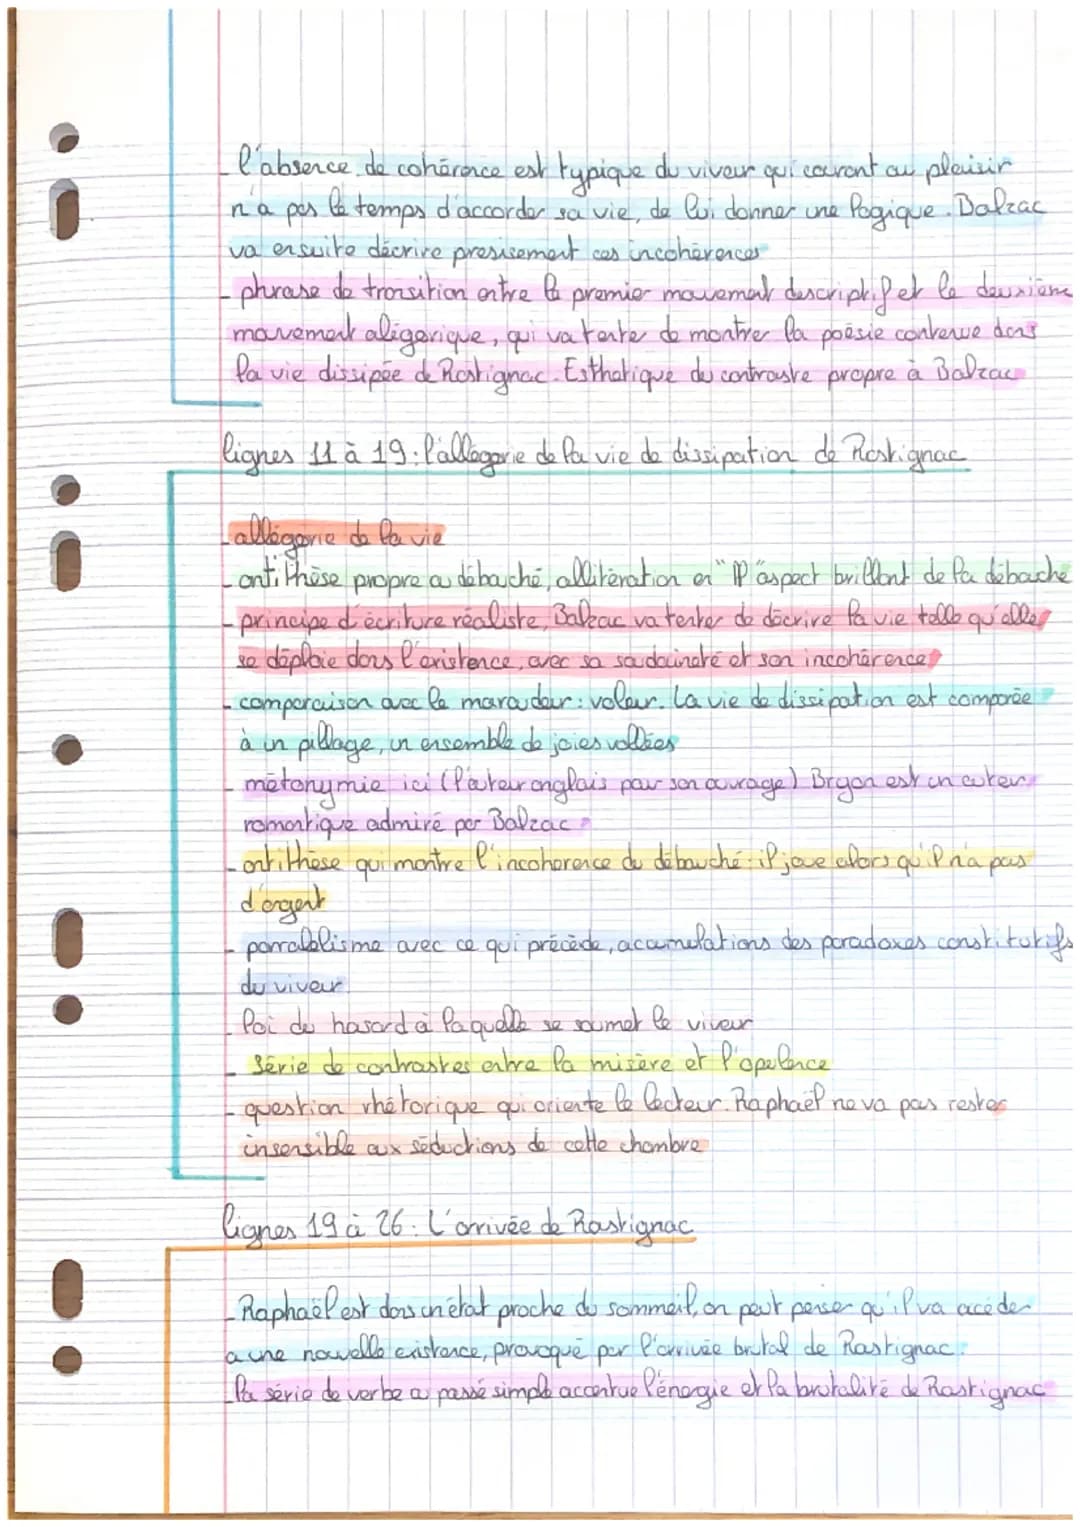 - l'absence de cohérence est typique du viveur qui courant au plaisir
n'a pas le temps d'accorder sa vie, de lui donner une logique. Balzac
va ensuite décrire presisement ces incohérences
- phrase de transition entre le premier mouvement descriptif et le deuxième
mouvement alégorique, qui va tenter de montrer la poésie contenue dans
la vie dissipée de Rastignac. Esthétique du contraste propre à Balzac
lignes 11 à 19 : l'allégorie de la vie de dissipation de Rastignac
- allégorie de la vie
- antithèse propre au débauché, allitération en "l" aspect brillant de la débauche
- principe d'écriture réaliste, Balzac va tenter de décrire la vie telle qu'elle
se déploie dans l'existence, avec sa soudaineté et son incohérence
- comparaison avec le maraudeur : voleur. La vie de dissipation est comparée
à un pillage, un ensemble de joies vollées
- métonymie ici (l'auteur anglais pour son ouvrage) Bryon est un auteur
romantique admiré par Balzac
- antithèse qui montre l'incohérence du débauché : il joue alors qu'il n'a pas
d'argent
- parralelisme avec ce qui précède, accumulations des paradoxes constitutifs
du viveur
- loi du hasard à laquelle se soumet le viveur
- série de contrastes entre la misère et l'opulence
- question rhétorique qui oriente le lecteur. Raphaël ne va pas rester
insensible aux séductions de cette chambre
lignes 19 à 26 : L'arrivée de Rastignac
- Raphaël est dans un état proche du sommeil, on peut penser qu'il va accéder
a une nouvelle existence, provoqué par l'arrivée brutal de Rastignac.
- la série de verbe au passé simple accentue l'énergie et la brutalité de Rastignac